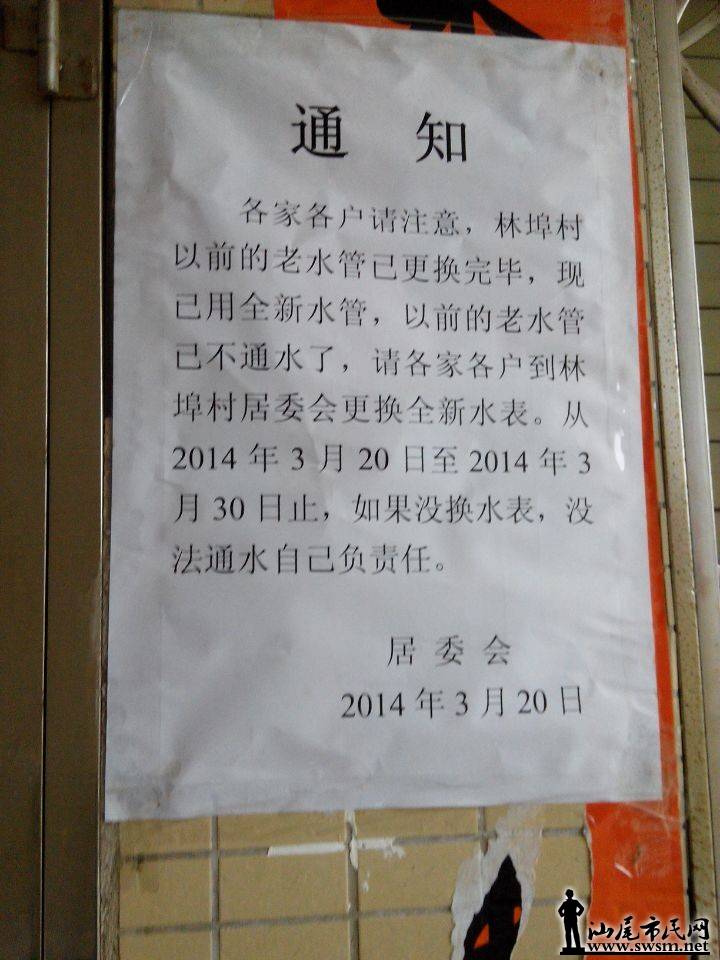 通 知
各家各户请注意，林埠村
以前的老水管已更换完毕，现
已用全新水管，以前的老水管
已不通水了，请各家各户到林
埠村居委会更换全新水表。从
2014 年 3 月 20 日至 2014 年 3
月 30 日止，如果没换水表，没
法通水自己负责任。
居 委 会
2014 年 3 月 20 日
汕尾市民网
www.swsm.net